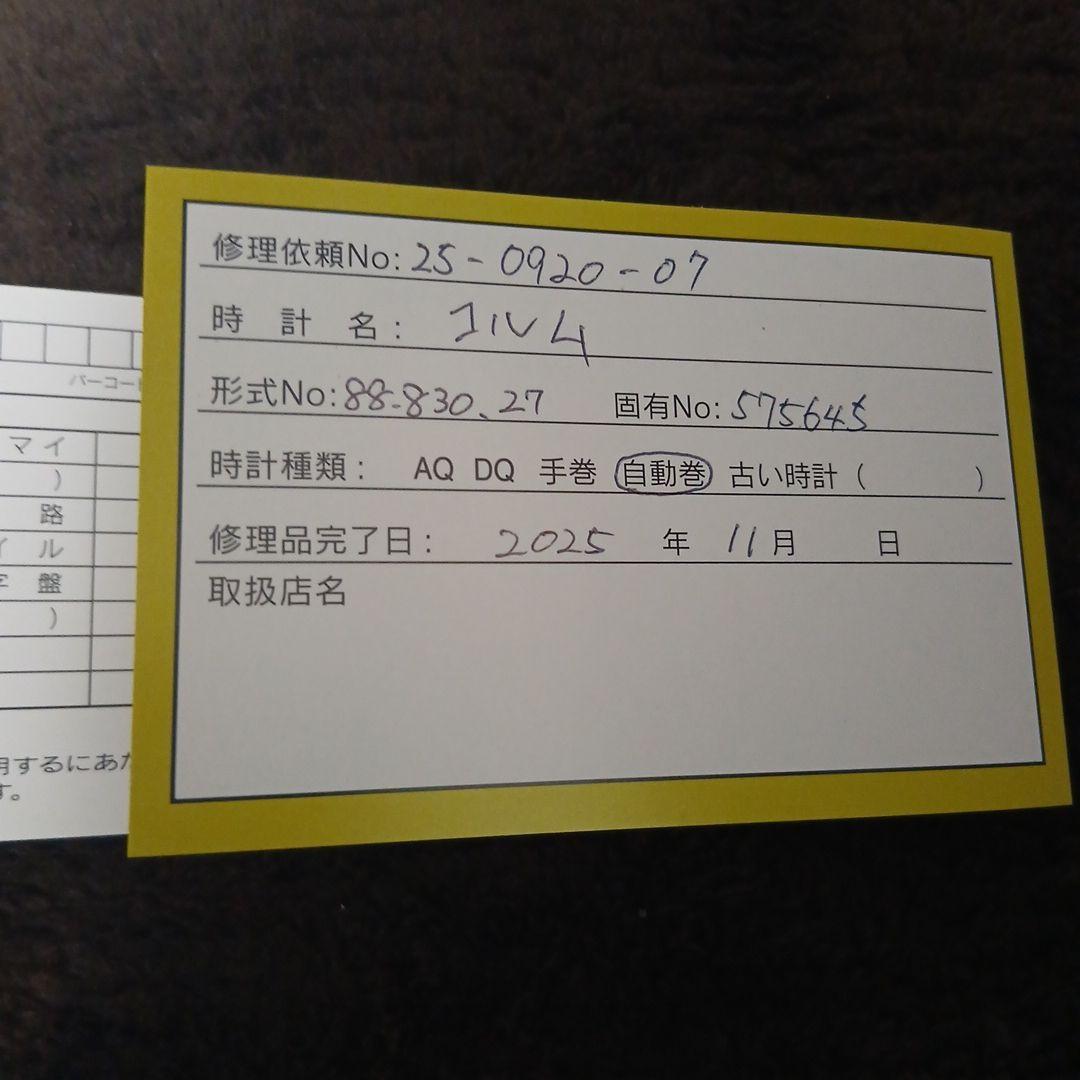 修理依頼No: 25-0920-07
時 計 名: コルム
形式No: 88-830.27 固有No: 575645
時計種類: AQ DQ 手巻 自動巻 古い時計( )
修理品完了日: 2025 年 11月 日
取扱店名
バーコー
マイ
)
路
イル
字 盤
)
用するにあた
す。